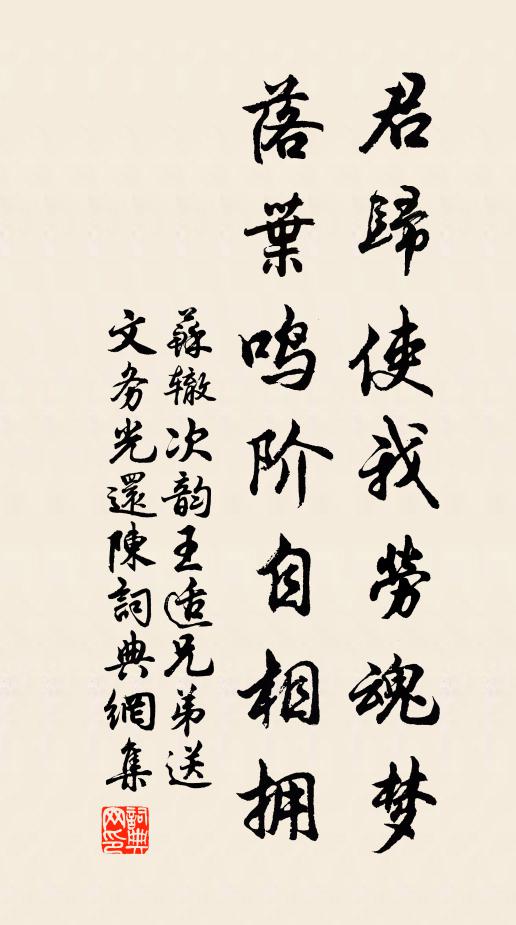 君歸使我勞魂梦
落葉鸣阶自相拥
蘇辙次韵王适兄弟送
文务光還陳詞典網集
詞典网印